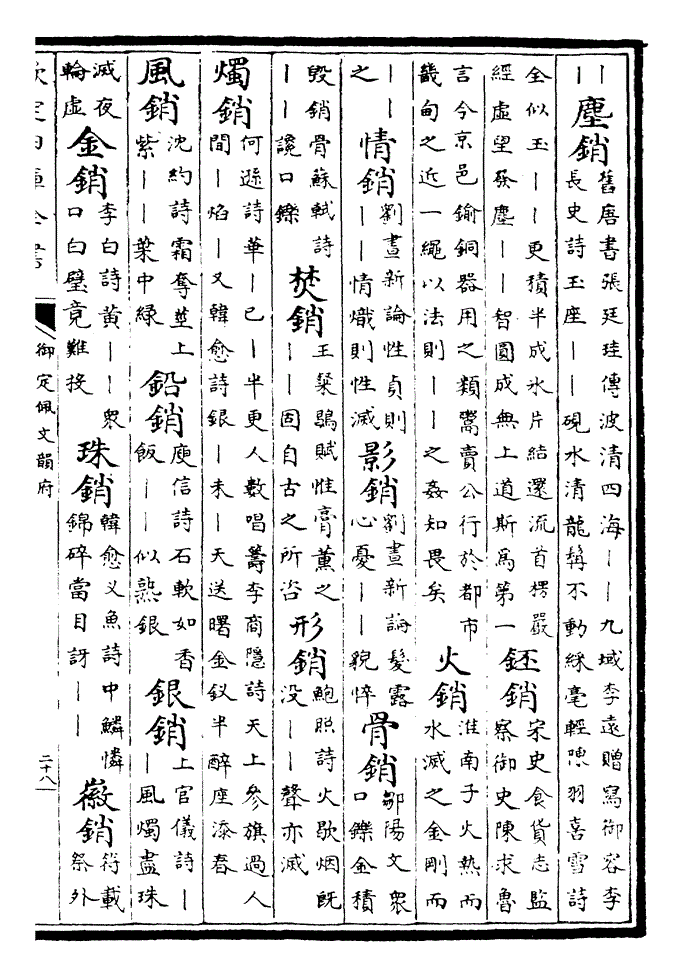 ｜
｜
塵銷
舊唐書張廷珪傳波清四海｜｜九域李遠贈寫御容李
長史詩玉座｜｜硯水清龍鬚不動綵毫輕陳羽喜雪詩
全似玉｜｜更積半成氷片結還流首楞嚴
經虛望發塵｜｜智圓成無上道斯爲第一
鉟銷
宋史食貨志監
察御史陳求魯
言今京邑鍮銅器用之類鬻賣公行於都市
畿甸之近一繩以法則｜｜之姦知畏矣
火銷
淮南子火熱而
水滅之金剛而
｜｜
之
情銷
劉晝新論性貞則
｜｜情熾則性滅
影銷
劉晝新論髮露
心憂｜｜貌悴
骨銷
鄒陽文衆
口鑠金積
毀銷骨蘇軾詩
｜｜讒口鑠
焚銷
王粲鶡賦惟膏薰之
｜｜固自古之所咨
形銷
鮑照詩火歇烟旣
没｜｜聲亦滅
燭銷
何遜詩華｜已｜半更人數唱籌李商隱詩天上參旗過人
間｜焰｜又韓愈詩銀｜未｜天送曙金釵半醉座添春
風銷
沈約詩霜奪莖上
紫｜｜葉中綠
鉛銷
庾信詩石軟如香
飯｜｜似熟銀
銀銷
上官儀詩｜
｜風燭盡珠
滅夜
輪虛
金銷
李白詩黃｜｜衆
口白璧竟難投
珠銷
韓愈乂魚詩中鱗憐
錦碎當目訝｜｜
徽銷
符載
祭外
欽定四庫全書
御定佩文韻府
二十八